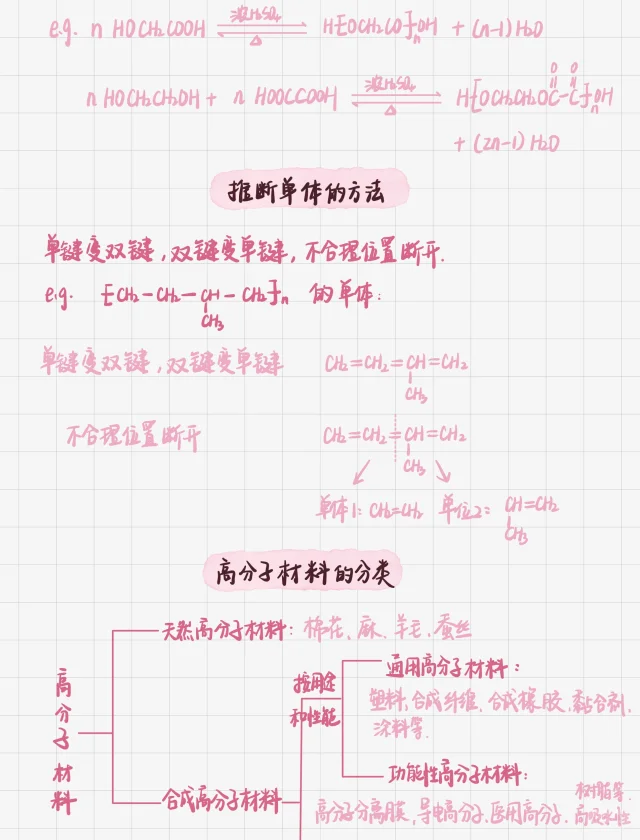 e.g. n HOCH2COOH ⇌ (浓H2SO4 △) H[OCH2CO]nOH + (n-1)H2O
n HOCH2CH2OH + n HOOCCOOH ⇌ (浓H2SO4 △) H[OCH2CH2OC(=O)-C(=O)]nOH
+ (2n-1)H2O
推断单体的方法
单键变双键,双键变单键,不合理位置断开.
e.g. [CH2-CH2-CH-CH2]n 的单体:
CH3
单键变双键,双键变单键 CH2=CH2=CH=CH2
CH3
不合理位置断开 CH2=CH2=CH=CH2
CH3
单体1: CH2=CH2 单位2: CH=CH2
CH3
高分子材料的分类
天然高分子材料: 棉花、麻、羊毛、蚕丝
高分子材料
按用途和性能
通用高分子材料:
塑料、合成纤维、合成橡胶、黏合剂、
涂料等.
合成高分子材料
功能性高分子材料:
高分子分离膜,导电高分子、医用高分子、高吸水性
树脂等.